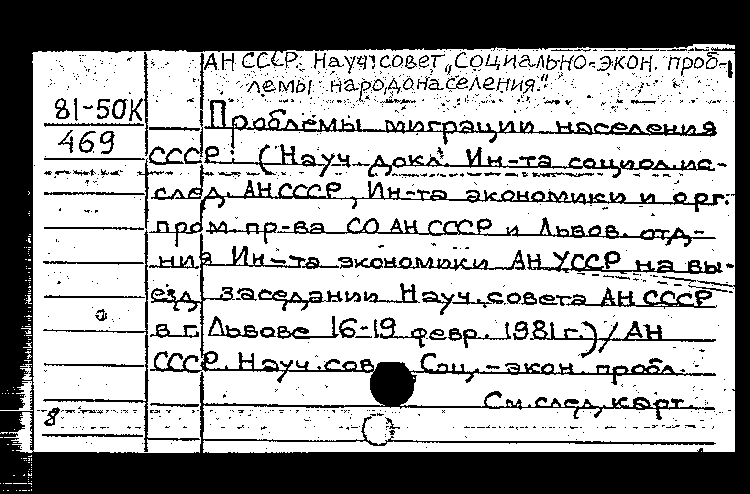 АН СССР. Науч. совет „Социально-экон. проб-
лемы народонаселения."
81-50К
469
Проблемы миграции населения
СССР: (Науч. докл. Ин-та социол. ис-
след. АН СССР, Ин-та экономики и орг.
пром. пр-ва СО АН СССР и Львов. отд-
ния Ин-та экономики АН УССР на вы-
езд. заседании Науч. совета АН СССР
в г. Львове 16-19 февр. 1981 г.) / АН
СССР. Науч. сов. Соц.-экон. пробл.
См. след. карт.
8